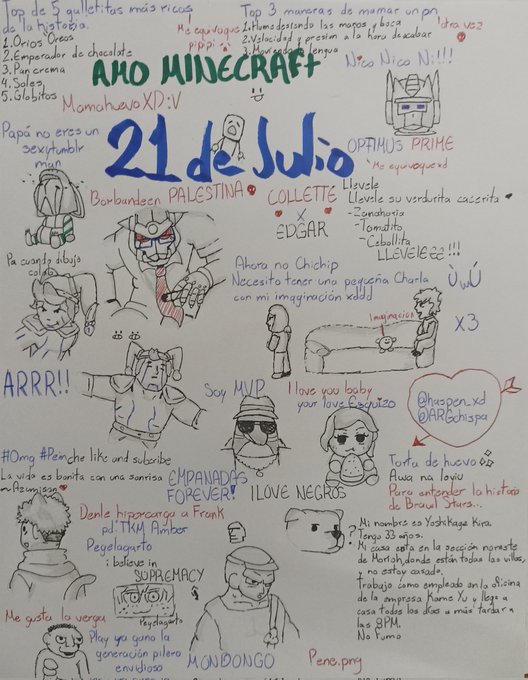 Top de 5 galletitas más ricas
de la historia.
1. Orios Oreos
2. Emperador de chocolate
3. Pan crema
4. Soles
5. Globitos
Me equivoque
pipipi
Top 3 maneras de mamar un pn
1. Humedestando las manos y boca
otra vez
2. Velocidad y presion a la hora descabar
3. lengua
AMO MINECRAFT
Nico Nico Ni!!!
Mamahuevo XD:V
Papá no eres un
sexy tumblr
man
21 de Julio
OPTIMUS PRIME
Me equivoque xd
Borbandeen PALESTINA
COLLETTE
X
EDGAR
Llevele
Llevele su verdurita caserita
- Zanahoria
- Tomatito
- Cebollita
LLEVELEEE!!!
Pa cuando dibujo
colab
Ahora no Chichip
Necesito tener una pequeña Charla
con mi imaginación xddd
ÙwÚ
X3
Imaginación
ARRR!!
Soy MVP
I love you baby
your love Esquizo
@haspen_xd
@ARGchispa
#Omg #Peinche like and subcribe
La vida es bonita con una sonrisa
~Azumison
EMPANADAS
FOREVER!
I LOVE NEGROS
Torta de huevo
Awa na loyiu
Para entender la historia
de Brawl Stars...
Denle hipercarga a Frank
pd: TKM Amber
Peyelagarto
i believe in
SUPREMACY
Peyelagarto
Mi nombre es Yoshikage Kira.
Tengo 33 años.
Mi casa esta en la sección noreste
de Morioh, donde están todas las villas,
y no estoy casado.
Trabajo como empleado en la oficina
de la empresa Kame Yu y llego a
casa todos los días a más tardar a
las 8PM.
No fumo
Me gusta la verga
Play ya gano la
generación pilero
envidioso
MONDONGO
Pene.png